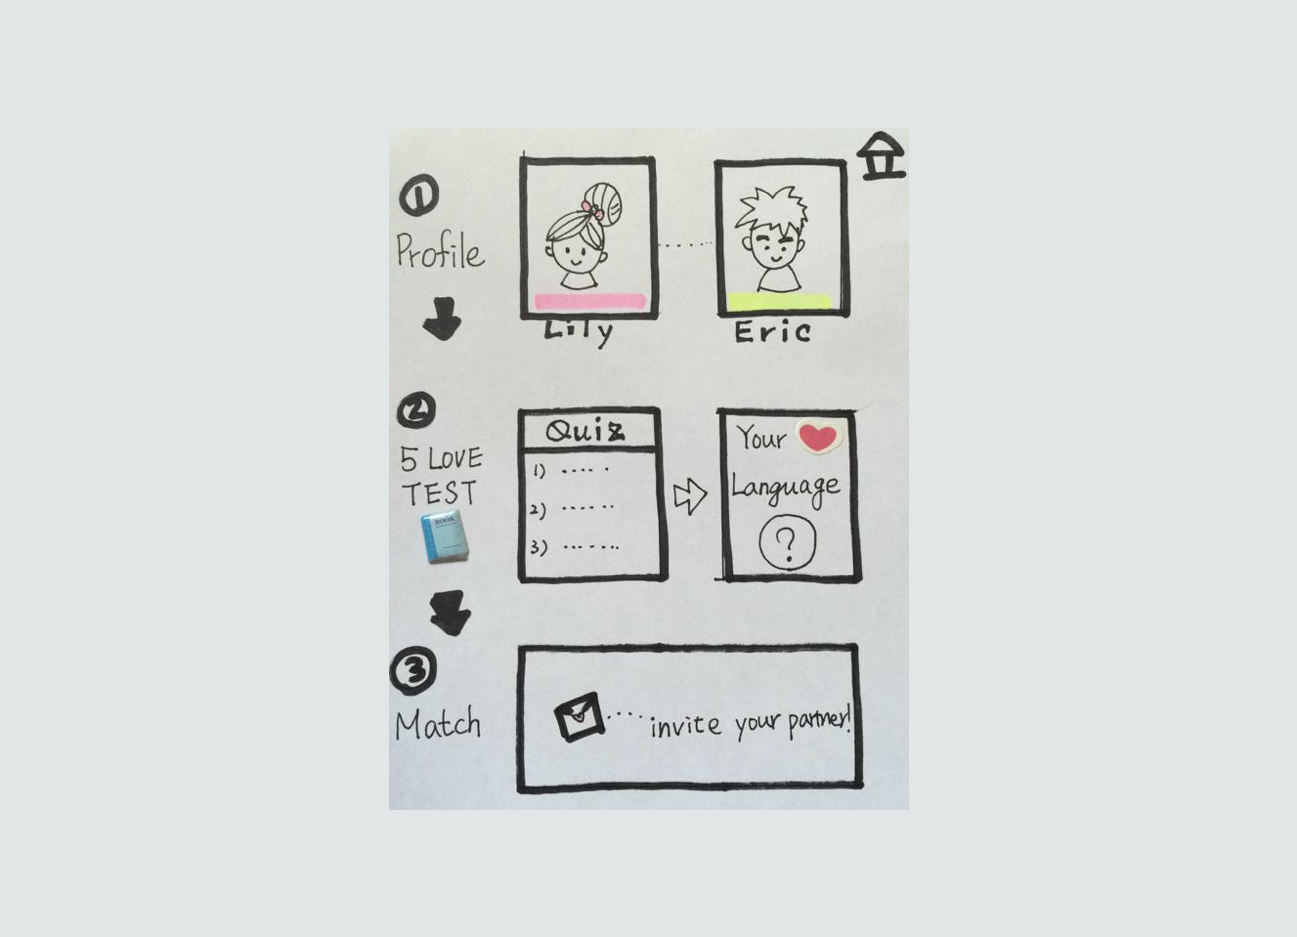 1
Profile
Lily
Eric
2
5 LOVE
TEST
BOOK
Quiz
1) ..... .
2) ..... ..
3) .......
Your ❤
Language
?
3
Match
..... invite your partner!